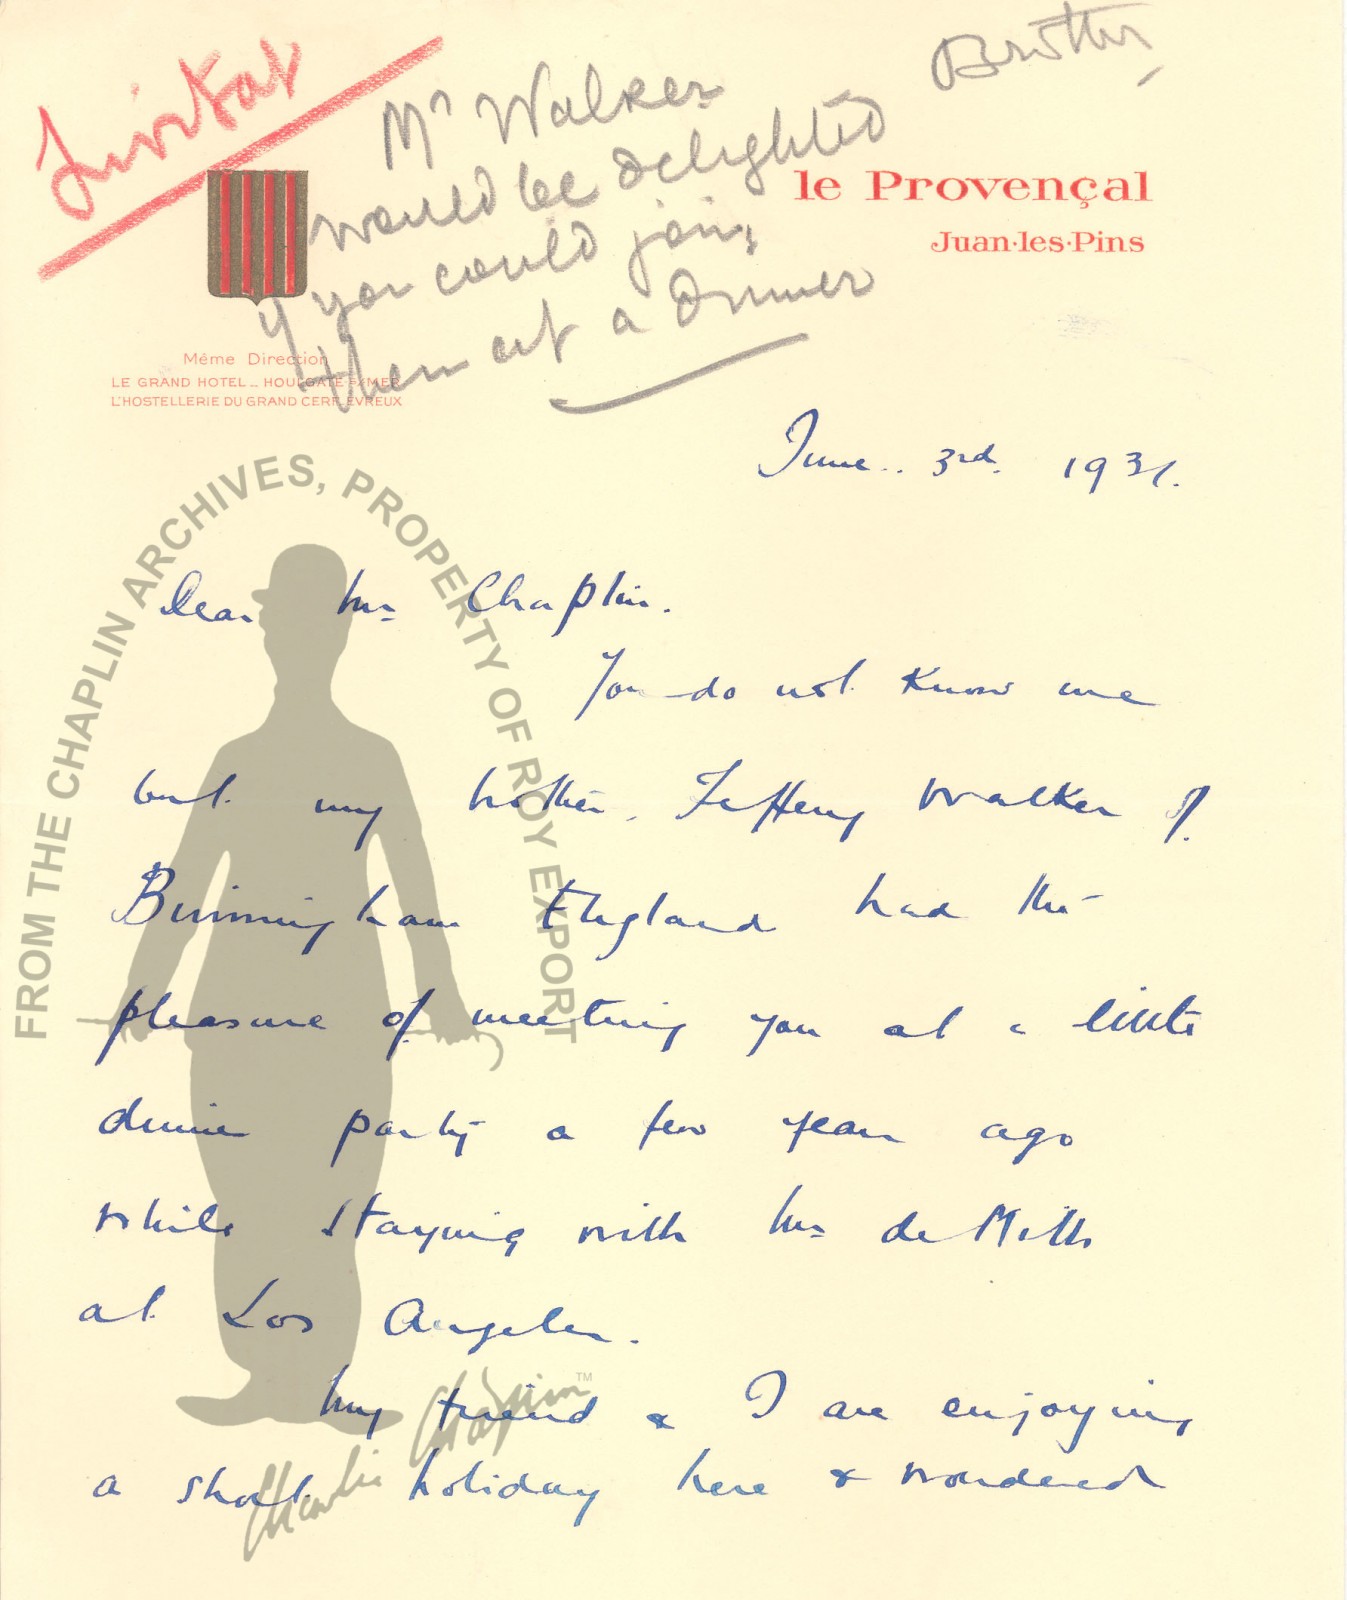 Invitat
Brother
Mr Walker
would be delighted
if you could join
them at a dinner
le Provençal
Juan-les-Pins
Même Direction
LE GRAND HOTEL .. HOULGATE S/MER
L'HOSTELLERIE DU GRAND CERF, EVREUX
June.. 3rd. 1931.
FROM THE CHAPLIN ARCHIVES, PROPERTY OF ROY EXPORT
Dear Mr Chaplin.
You do not know me
but my brother, Jeffery Walker of
Birmingham England had the
pleasure of meeting you at a little
dinner party a few years ago
while staying with Mr de Mille
at Los Angeles.
My friend & I are enjoying
a short holiday here & wondered
Charlie Chaplin™